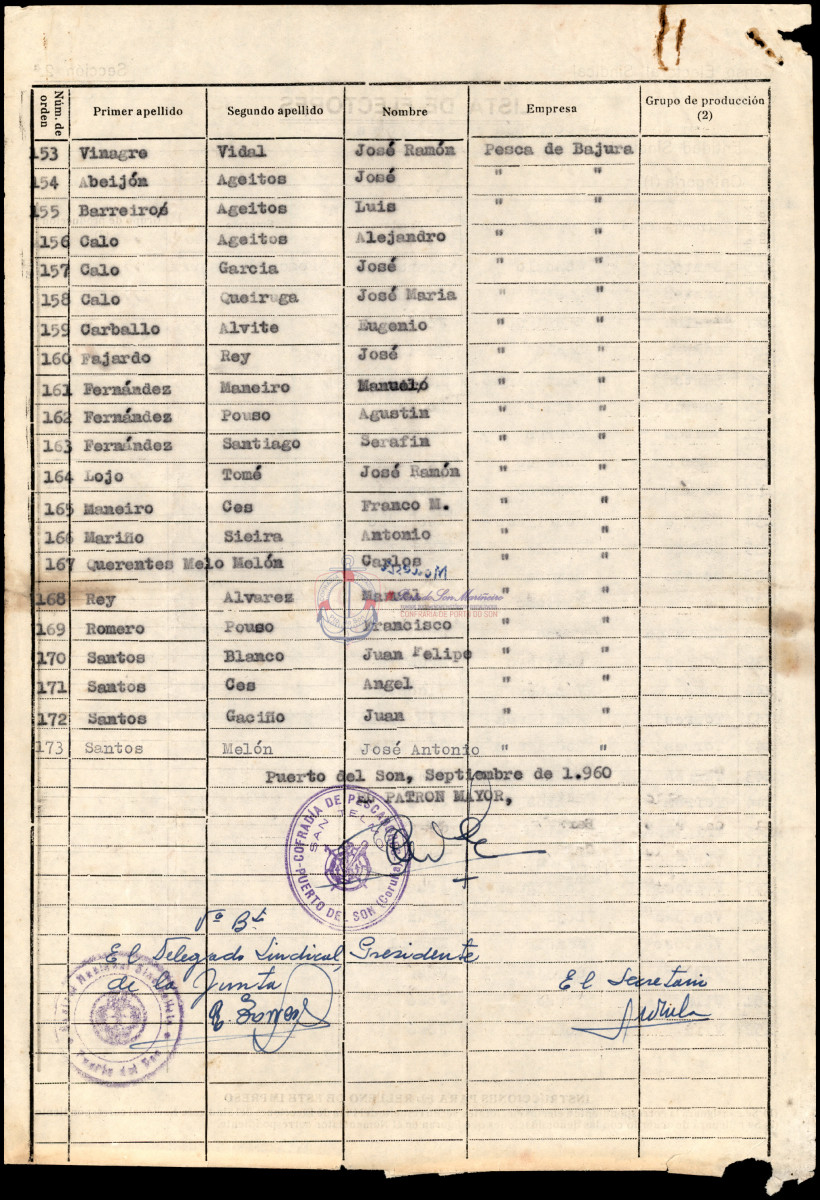 Núm. de orden Primer apellido Segundo apellido Nombre Empresa Grupo de producción (2)
153 Vinagre Vidal José Ramón Pesca de Bajura
154 Abeijón Ageitos José " "
155 Barreiros Ageitos Luis " "
156 Calo Ageitos Alejandro " "
157 Calo Garcia José " "
158 Calo Queiruga José Maria " "
159 Carballo Alvite Eugenio " "
160 Fajardo Rey José " "
161 Fernández Maneiro Manuel " "
162 Fernández Pouso Agustin " "
163 Fernández Santiago Serafin " "
164 Lojo Tomé José Ramón " "
165 Maneiro Ces Franco M. " "
166 Mariño Sieira Antonio " "
167 Querentes Melo Melón Carlos " "
168 Rey Alvarez Manuel " "
CONFRARÍA DE PORTO DO SON
169 Romero Pouso Francisco " "
170 Santos Blanco Juan Felipe " "
171 Santos Ces Angel " "
172 Santos Gaciño Juan " "
173 Santos Melón José Antonio " "
Puerto del Son, Septiembre de 1.960
EL PATRON MAYOR,
COFRADÍA DE PESCADORES
SAN TELMO
PUERTO DEL SON (Coruña)
Vº Bº
El Delegado Sindical, Presidente
de la Junta
El Secretario
Puerto del Son